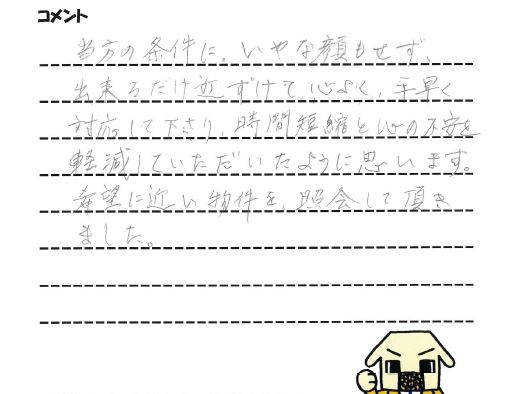 コメント
当方の条件に、いやな顔もせず、
出来るだけ近ずけて、心よく、手早く
対応して下さり、時間短縮と心の不安を
軽減していただいたように思います。
希望に近い物件を、照会して頂き
ました。